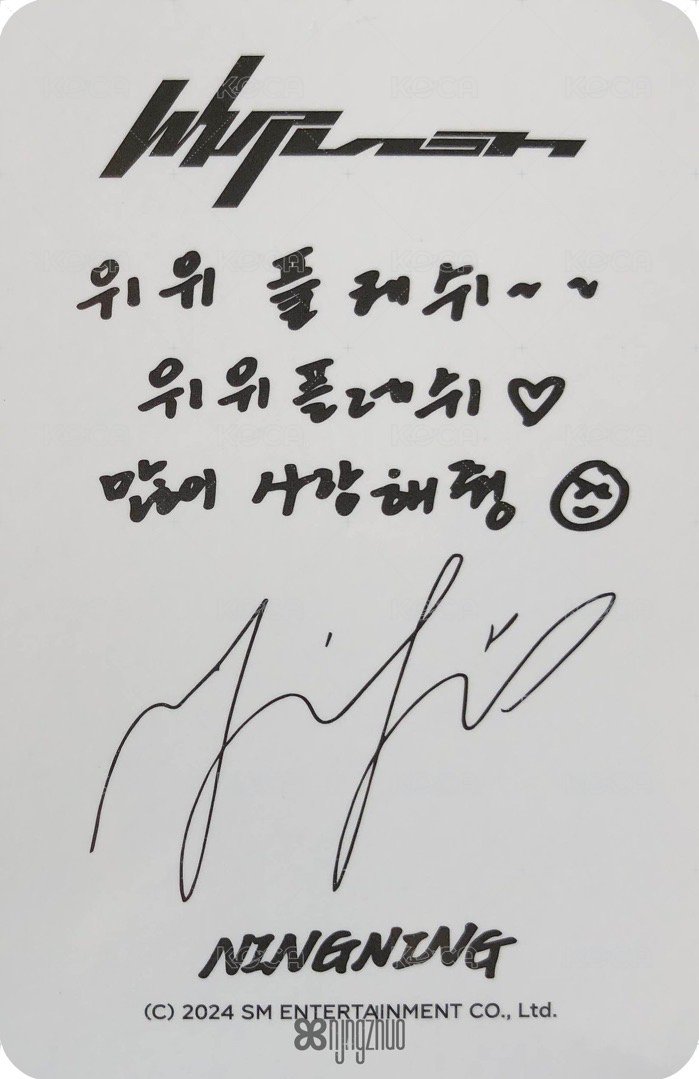 Whiplash
위위 플레쉬~~
위위플레쉬♡
많이 사랑해형
NINGNING
(C) 2024 SM ENTERTAINMENT CO., Ltd.
njngzhuo
KOCA